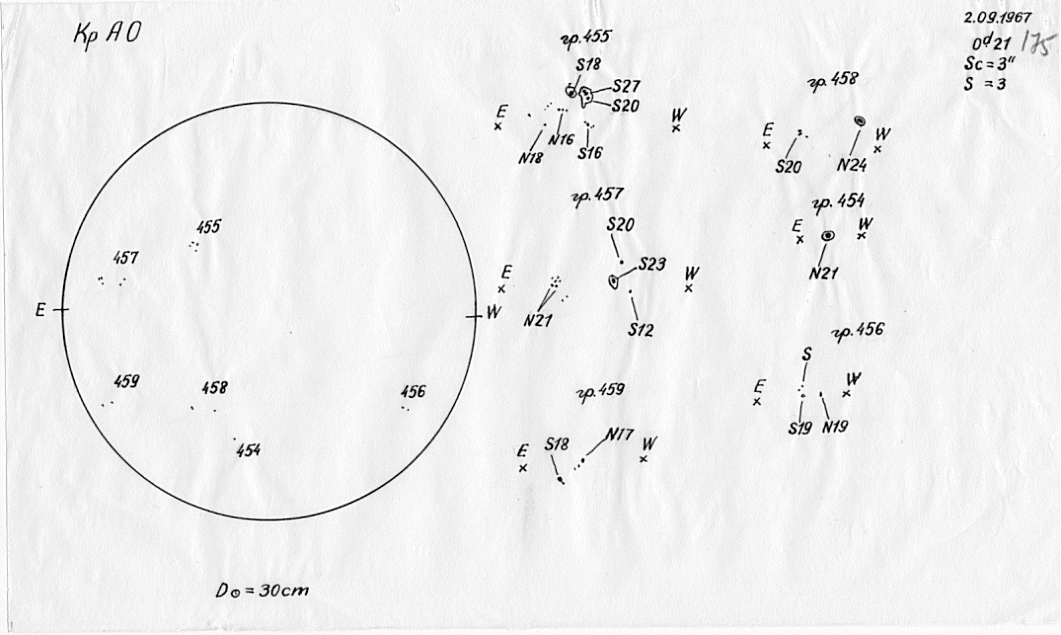 Кр АО
2.09.1967
0ᵈ21 175
Sc = 3"
S = 3
гр. 455
S18
S27
S20
E
W
N18
N16
S16
гр. 458
E
W
S20
N24
гр. 457
S20
S23
E
W
N21
S12
гр. 454
E
W
N21
гр. 456
S
E
W
S19 N19
гр. 459
S18
N17
E
W
455
457
E
W
459
458
456
454
D⊙ = 30cm